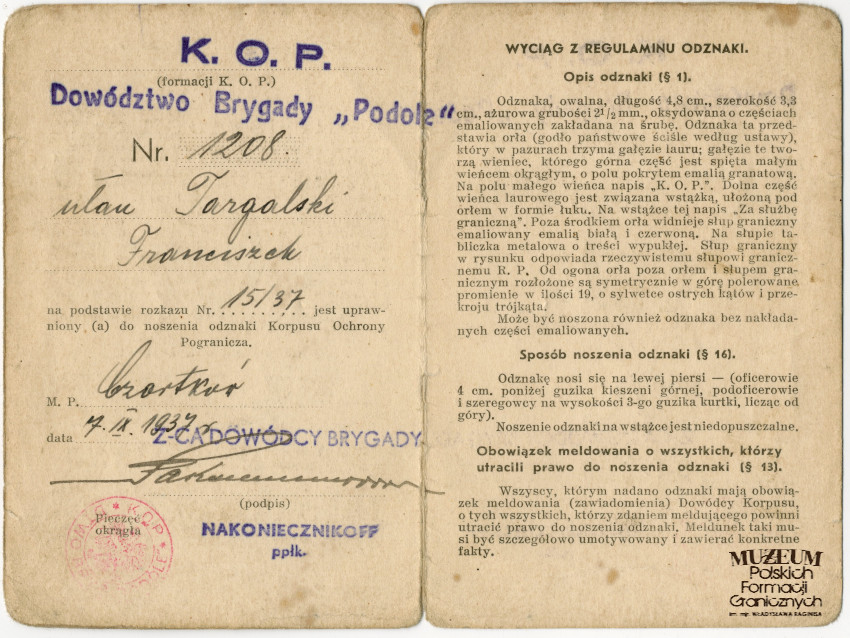 K. O. P.
(formacji K. O. P.)
Dowództwo Brygady „Podole“
Nr. 1208.
ułan Targalski
Franciszek
na podstawie rozkazu Nr. 15/37 jest upraw-
niony (a) do noszenia odznaki Korpusu Ochrony
Pogranicza.
M. P. Czortków
data 7.IX.1937 r.
Z-CA DOWÓDCY BRYGADY
(podpis)
Pieczęć
okrągła
K.O.P.
NAKONIECZNIKOFF
ppłk.
WYCIĄG Z REGULAMINU ODZNAKI.
Opis odznaki (§ 1).
Odznaka, owalna, długość 4,8 cm., szerokość 3,3
cm., ażurowa grubości 2 1/2 mm., oksydowana o częściach
emaliowanych zakładana na śrubę. Odznaka ta przed-
stawia orła (godło państwowe ściśle według ustawy),
który w pazurach trzyma gałęzie lauru; gałęzie te two-
rzą wieniec, którego górna część jest spięta małym
wieńcem okrągłym, o polu pokrytem emalią granatową.
Na polu małego wieńca napis „K. O. P.". Dolna część
wieńca laurowego jest związana wstążką, ułożoną pod
orłem w formie łuku. Na wstążce tej napis „Za służbę
graniczną". Poza środkiem orła widnieje słup graniczny
emaliowany emalią białą i czerwoną. Na słupie ta-
bliczka metalowa o treści wypukłej. Słup graniczny
w rysunku odpowiada rzeczywistemu słupowi granicz-
nemu R. P. Od ogona orła poza orłem i słupem gra-
nicznym rozłożone są symetrycznie w górę polerowane
promienie w ilości 19, o sylwetce ostrych kątów i prze-
kroju trójkąta.
Może być noszona również odznaka bez nakłada-
nych części emaliowanych.
Sposób noszenia odznaki (§ 16).
Odznakę nosi się na lewej piersi — (oficerowie
4 cm. poniżej guzika kieszeni górnej, podoficerowie
i szeregowcy na wysokości 3-go guzika kurtki, licząc od
góry).
Noszenie odznaki na wstążce jest niedopuszczalne.
Obowiązek meldowania o wszystkich, którzy
utracili prawo do noszenia odznaki (§ 13).
Wszyscy, którym nadano odznaki mają obowią-
zek meldowania (zawiadomienia) Dowódcy Korpusu,
o tych wszystkich, którzy zdaniem meldującego powinni
utracić prawo do noszenia odznaki. Meldunek taki mu-
si być szczegółowo umotywowany i zawierać konkretne
fakty.
MUZEUM
Polskich
Formacji
Granicznych
im. mjr. WŁADYSŁAWA RAGINISA